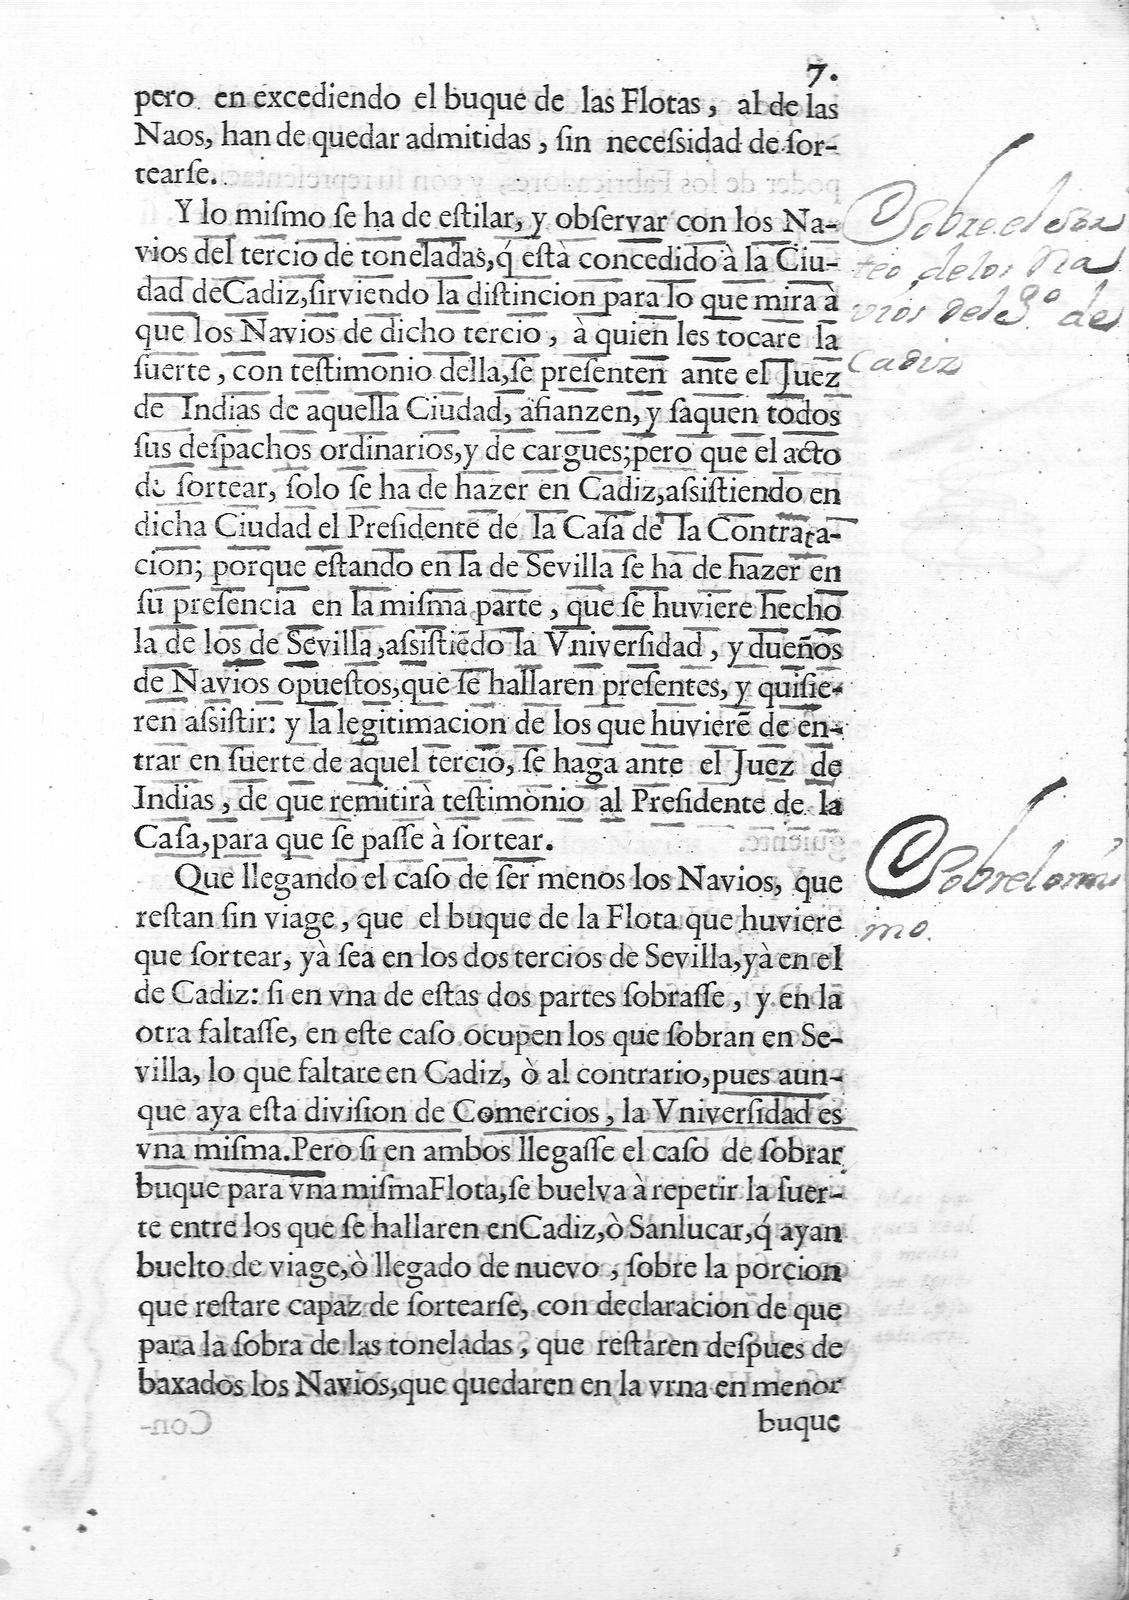 7.
pero en excediendo el buque de las Flotas, al de las
Naos, han de quedar admitidas, ſin neceſsidad de ſor-
tearſe.
Y lo miſmo ſe ha de eſtilar, y obſervar con los Na-
vios del tercio de toneladas, q́ eſtà concedido à la Ciu-
dad de Cadiz, ſirviendo la diſtincion para lo que mira à
que los Navios de dicho tercio, à quien les tocare la
ſuerte, con teſtimonio della, ſe preſenten ante el Juez
de Indias de aquella Ciudad, afianzen, y ſaquen todos
ſus deſpachos ordinarios, y de cargues; pero que el acto
de ſortear, ſolo ſe ha de hazer en Cadiz, aſsiſtiendo en
dicha Ciudad el Preſidente de la Caſa de la Contrata-
cion; porque eſtando en la de Sevilla ſe ha de hazer en
ſu preſencia en la miſma parte, que ſe huviere hecho
la de los de Sevilla, aſsiſtiēdo la Vniverſidad, y dueños
de Navios opueſtos, que ſe hallaren preſentes, y quiſie-
ren aſsiſtir: y la legitimacion de los que huvierē de en-
trar en ſuerte de aquel tercio, ſe haga ante el Juez de
Indias, de que remitirà teſtimonio al Preſidente de la
Caſa, para que ſe paſſe à ſortear.
Que llegando el caſo de ſer menos los Navios, que
reſtan ſin viage, que el buque de la Flota que huviere
que ſortear, yà ſea en los dos tercios de Sevilla, yà en el
de Cadiz: ſi en vna de eſtas dos partes ſobraſſe, y en la
otra faltaſſe, en eſte caſo ocupen los que ſobran en Se-
villa, lo que faltare en Cadiz, ò al contrario, pues aun-
que aya eſta diviſion de Comercios, la Vniverſidad es
vna miſma. Pero ſi en ambos llegaſſe el caſo de ſobrar
buque para vna miſma Flota, ſe buelva à repetir la ſuer-
te entre los que ſe hallaren en Cadiz, ò Sanlucar, q́ ayan
buelto de viage, ò llegado de nuevo, ſobre la porcion
que reſtare capaz de ſortearſe, con declaracion de que
para la ſobra de las toneladas, que reſtaren deſpues de
baxados los Navios, que quedaren en la vrna en menor
buque
Sobre el sor
teo de los Na
vios del 3º de
Cadiz
Sobre lo mis
mo.